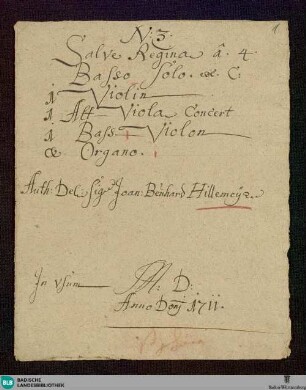 1
N: 3.
Salve Regina â. 4
Basso Solo. & C.
1 Violin
1 Alt Viola Concert
1 Bass Violon
& Organo.
Auth: Del Sig: Joan: Bernhard Hillemeyr.
In Usum M: D:
Anno Donj 1711.
BLB BADISCHE LANDESBIBLIOTHEK